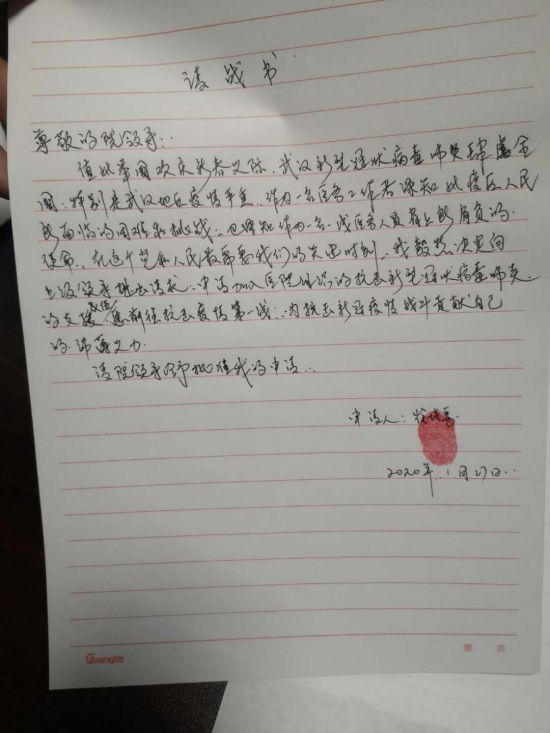 请战书
尊敬的院领导：
值此举国欢庆新春之际，武汉新型冠状病毒肺炎肆虐全
国，特别是武汉地区疫情严重，作为一名医务工作者深知此疫区人民
所面临的困难和挑战，也深知作为一名一线医务人员肩上所肩负的
使命，在这个党和人民最需要我们的关键时刻，我毅然决定向
上级领导提出请求，申请加入医院组织的抗击新型冠状病毒肺炎
的支援 前往抗击疫情第一线，为抗击新冠疫情战斗贡献自己
的 之力.
请院领导 批准我的申请.
申请人：
2020年1月27日.
GuangBo
第 页